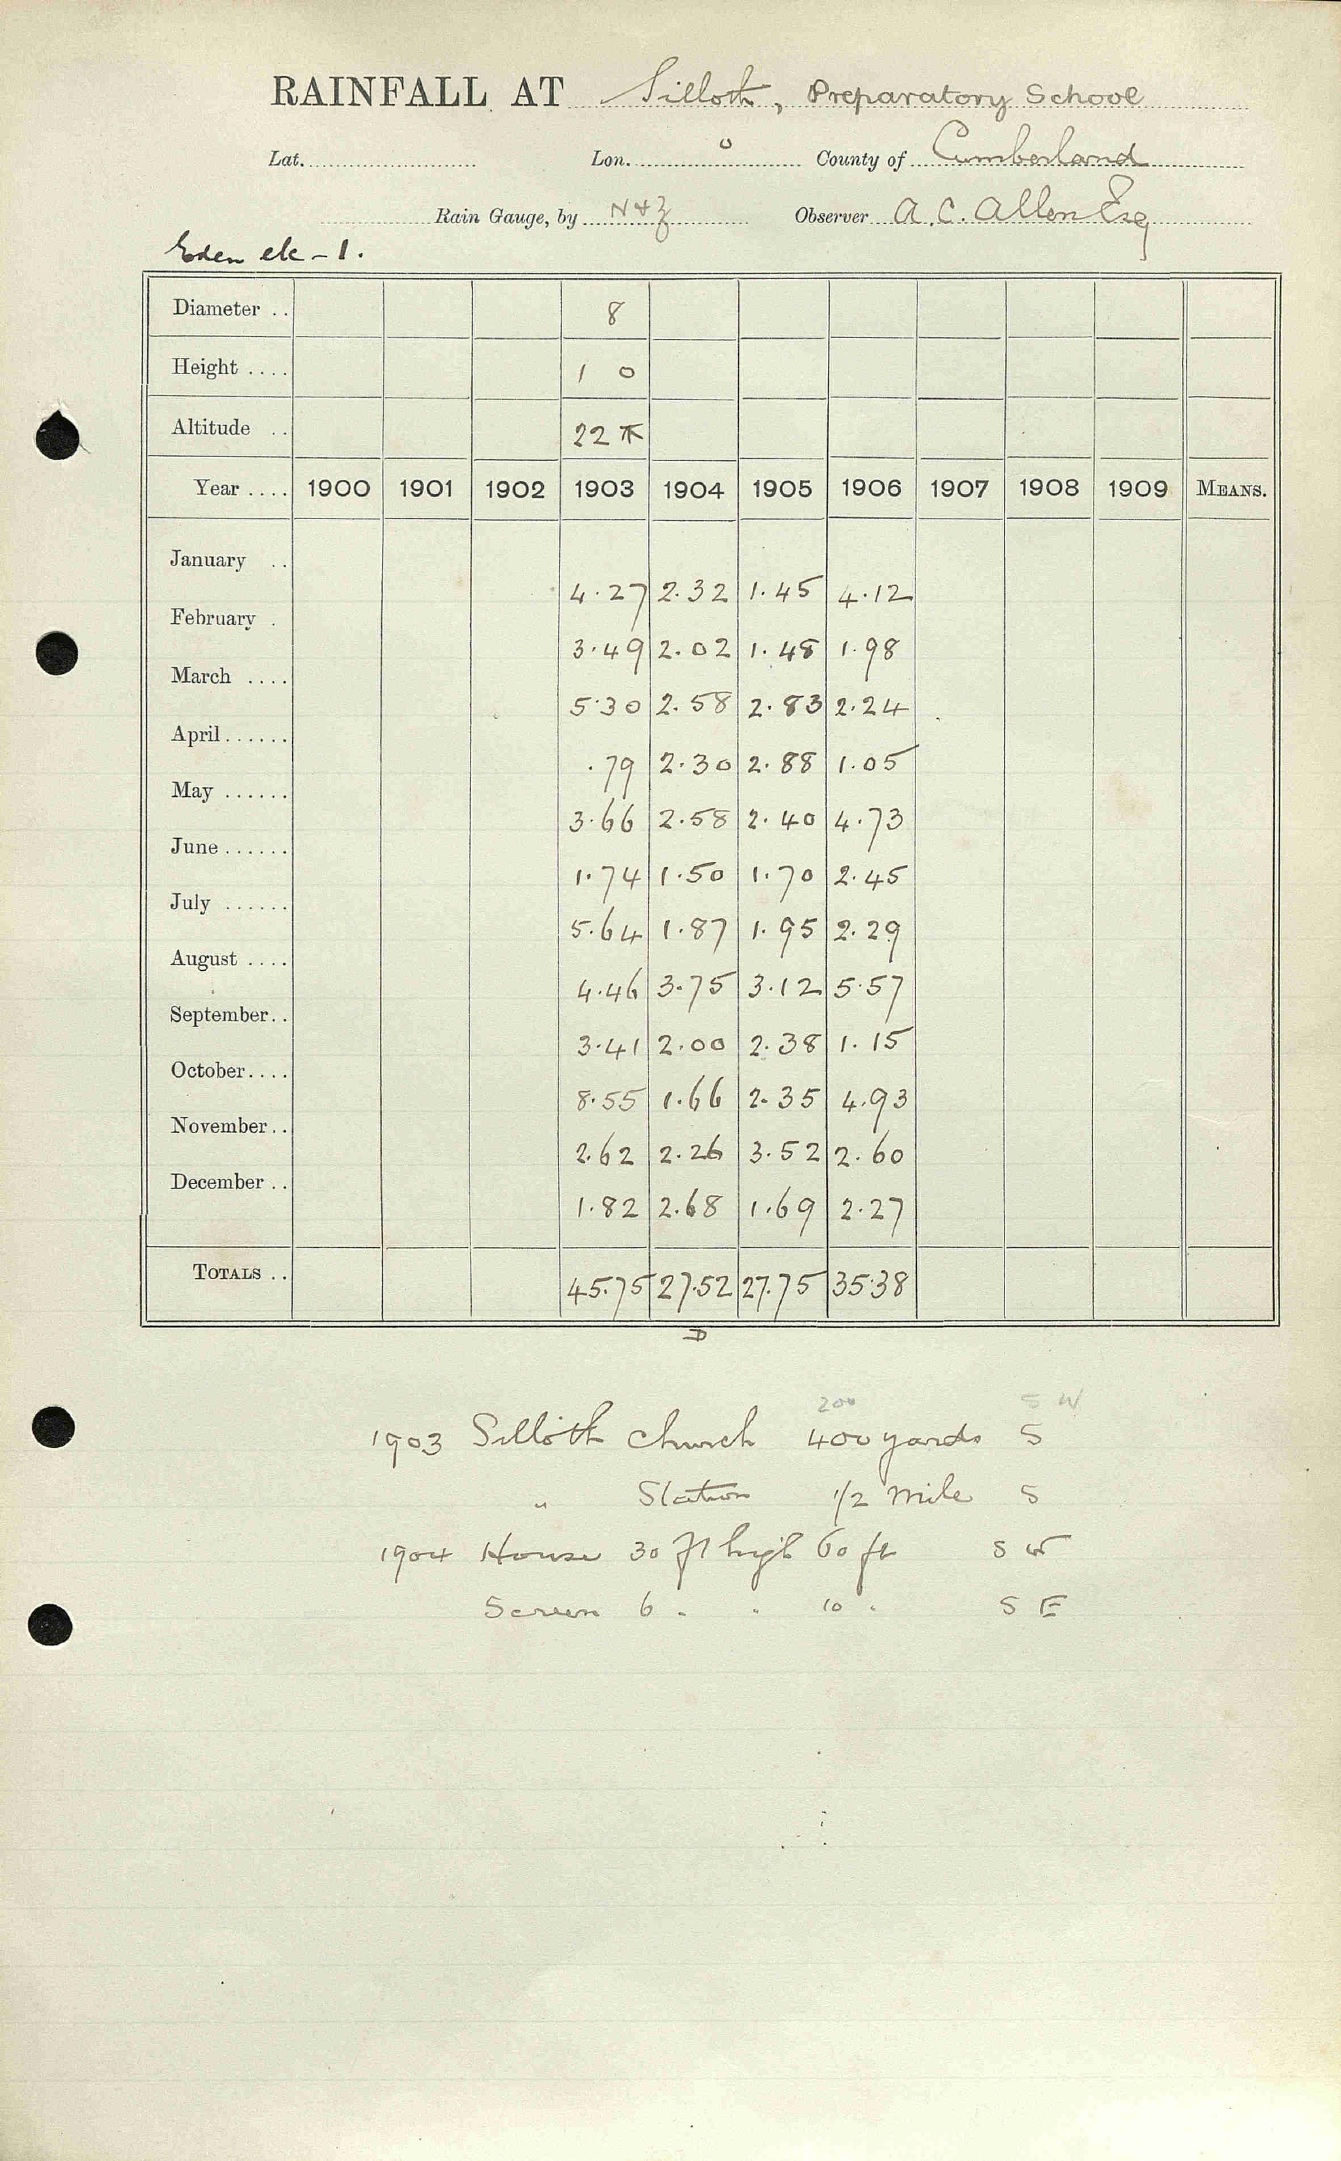 RAINFALL AT Silloth, Preparatory School
Lat. Lon. 0 County of Cumberland
Rain Gauge, by N & Z Observer A. C. Allen Esq
Eden etc - 1.
Diameter .. 8
Height .... 1 0
Altitude .. 22
Year .... 1900 1901 1902 1903 1904 1905 1906 1907 1908 1909 MEANS.
January .. 4.27 2.32 1.45 4.12
February . 3.49 2.02 1.48 1.98
March .... 5.30 2.58 2.83 2.24
April ...... .79 2.30 2.88 1.05
May ...... 3.66 2.58 2.40 4.73
June ...... 1.74 1.50 1.70 2.45
July ...... 5.64 1.87 1.95 2.29
August .... 4.46 3.75 3.12 5.57
September.. 3.41 2.00 2.38 1.15
October.... 8.55 1.66 2.35 4.93
November.. 2.62 2.26 3.52 2.60
December .. 1.82 2.68 1.69 2.27
TOTALS .. 45.75 27.52 27.75 35.38
D
200 S W
1903 Silloth Church 400 yards S
" Station 1/2 mile S
1904 House 30 ft high 60 ft S W
Screen 6 " " 10 " S E